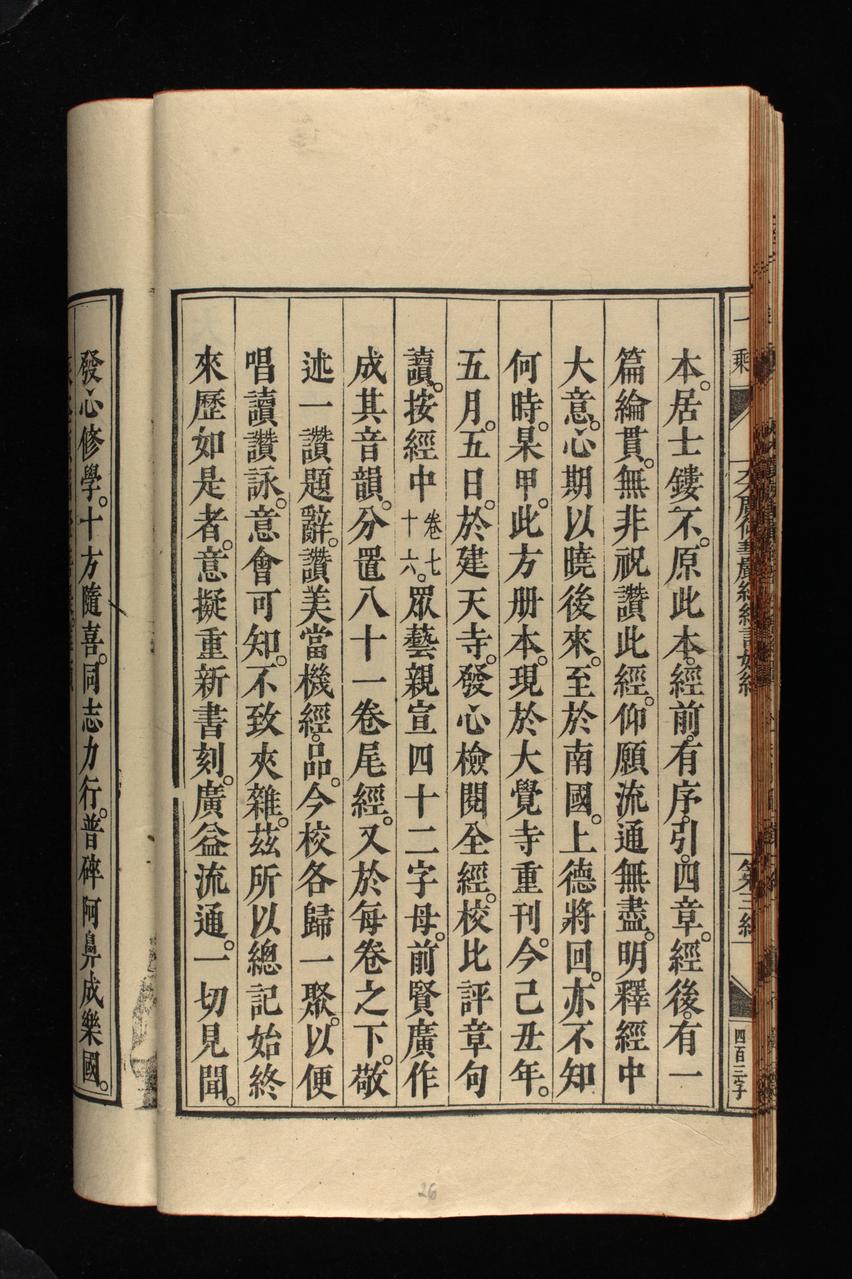 一乘
大方廣佛華嚴經綸音妙經
第三紙
四百三字
本。居士鏤不。原此本。經前。有序。引。四章。經後。有一
篇綸貫。無非祝讚此經。仰願流通無盡。明釋經中
大意。心期以曉後來。至於南國。上德將回。亦不知
何時。某甲。此方册本。現於大覺寺重刊。今己丑年。
五月。五日。於建天寺。發心檢閱全經。校比評章句
讀。按經中卷七十六。眾藝親宣四十二字母。前賢廣作
成其音韻。分置八十一卷尾經。又於每卷之下。敬
述一讚題辭。讚美當機經。品。今校各歸一聚。以便
唱讀讚詠。意會可知。不致夾雜。茲所以總記始終
來歷如是者。意擬重新書刻。廣益流通。一切見聞。
發心修學。十方隨喜。同志力行。普碎阿鼻成樂國。
26